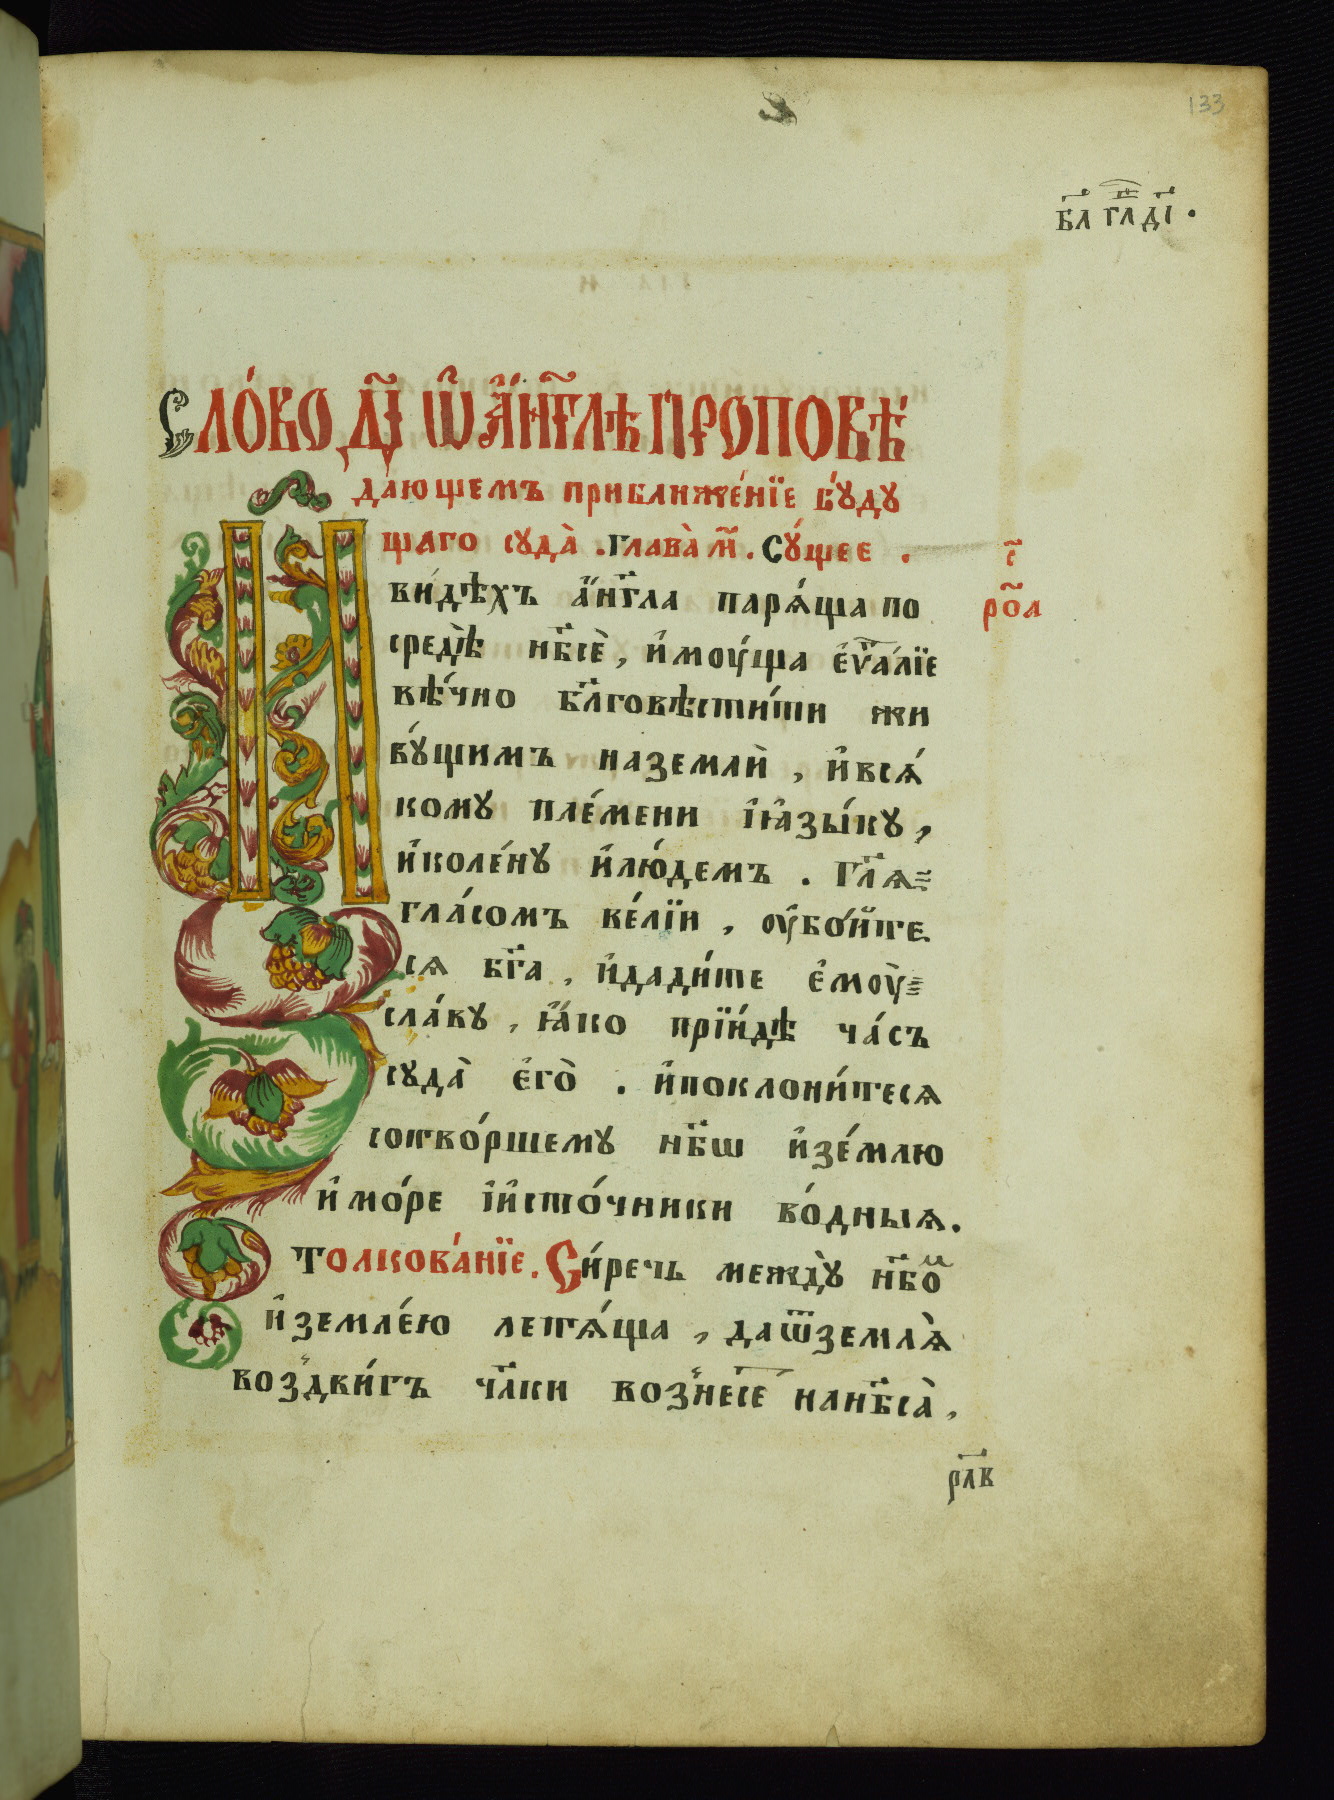 133
бл҃ гл҃ д҃і .
Сло́во д҃і ѡ҆ а҆́нг҃лѣ проповѣ́
дающемъ приближе́нїе бꙋ́дꙋ
щаго сꙋда̀ . глава̀ м҃ . Сꙋ́щее .
с҃
ро҃а
И
ви́дѣхъ а҆́нг҃ла паря́ща по
средѣ̀ нб҃сѐ , и҆мꙋ́ща є҆ѵ҃а́лїе
вѣ́чно бл҃говѣсти́ти жи
вꙋ́щимъ наземлѝ , и҆вся́
комꙋ пле́мени і҆ꙗ҆зы́кꙋ ,
и҆коле́нꙋ и҆лю́демъ . гл҃ѧ
гла́сомъ ве́лїи , ᲂу҆бо́йте
сѧ бг҃а , и҆дади́те є҆мᲂу̀
сла́вꙋ , ꙗ҆́ко прїи́дѣ ча́съ
сꙋда̀ є҆го̀ . и҆поклони́тесѧ
сотво́ршемꙋ нб҃ѡ и҆зе́млю
и҆мо́ре і҆и҆сто́чники во́дныѧ .
Толкова́нїе . Си́речь междꙋ̀ нб҃ом
и҆земле́ю летѧ́ща , даѿземлѧ̀
воздви́гъ чл҃ки вознесе́ нанб҃са̀ ,
рл҃в